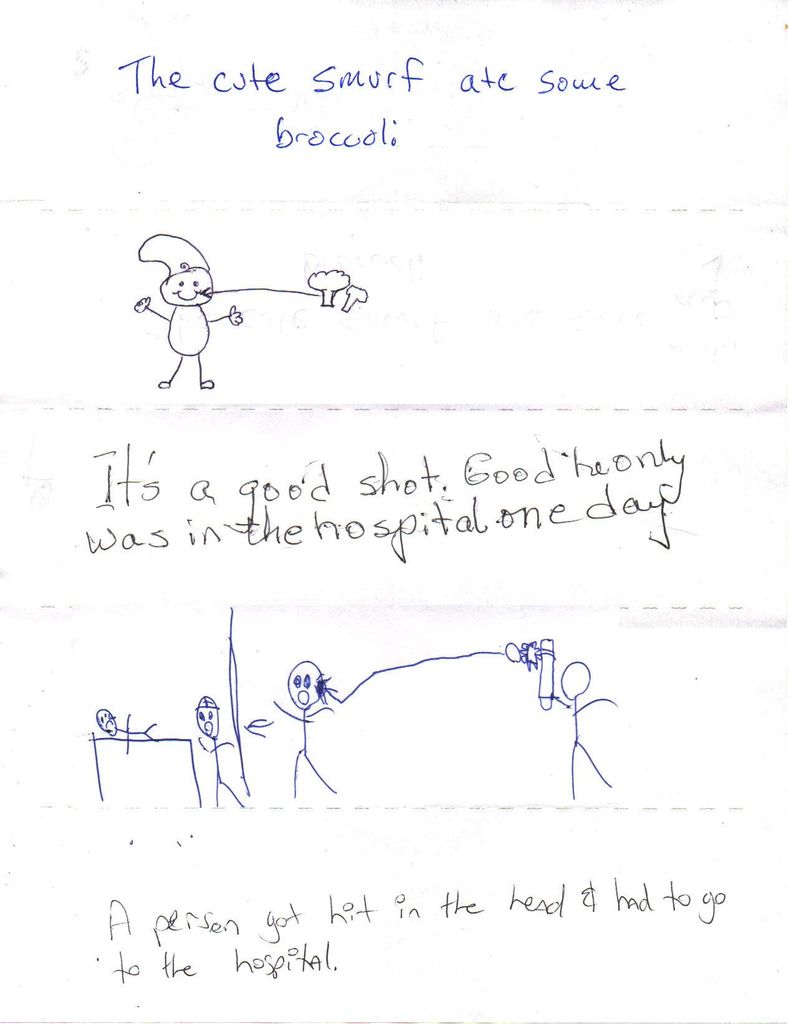 The cute smurf ate some
broccoli
It's a good shot. Good he only
was in the hospital one day
A person got hit in the head & had to go
to the hospital.